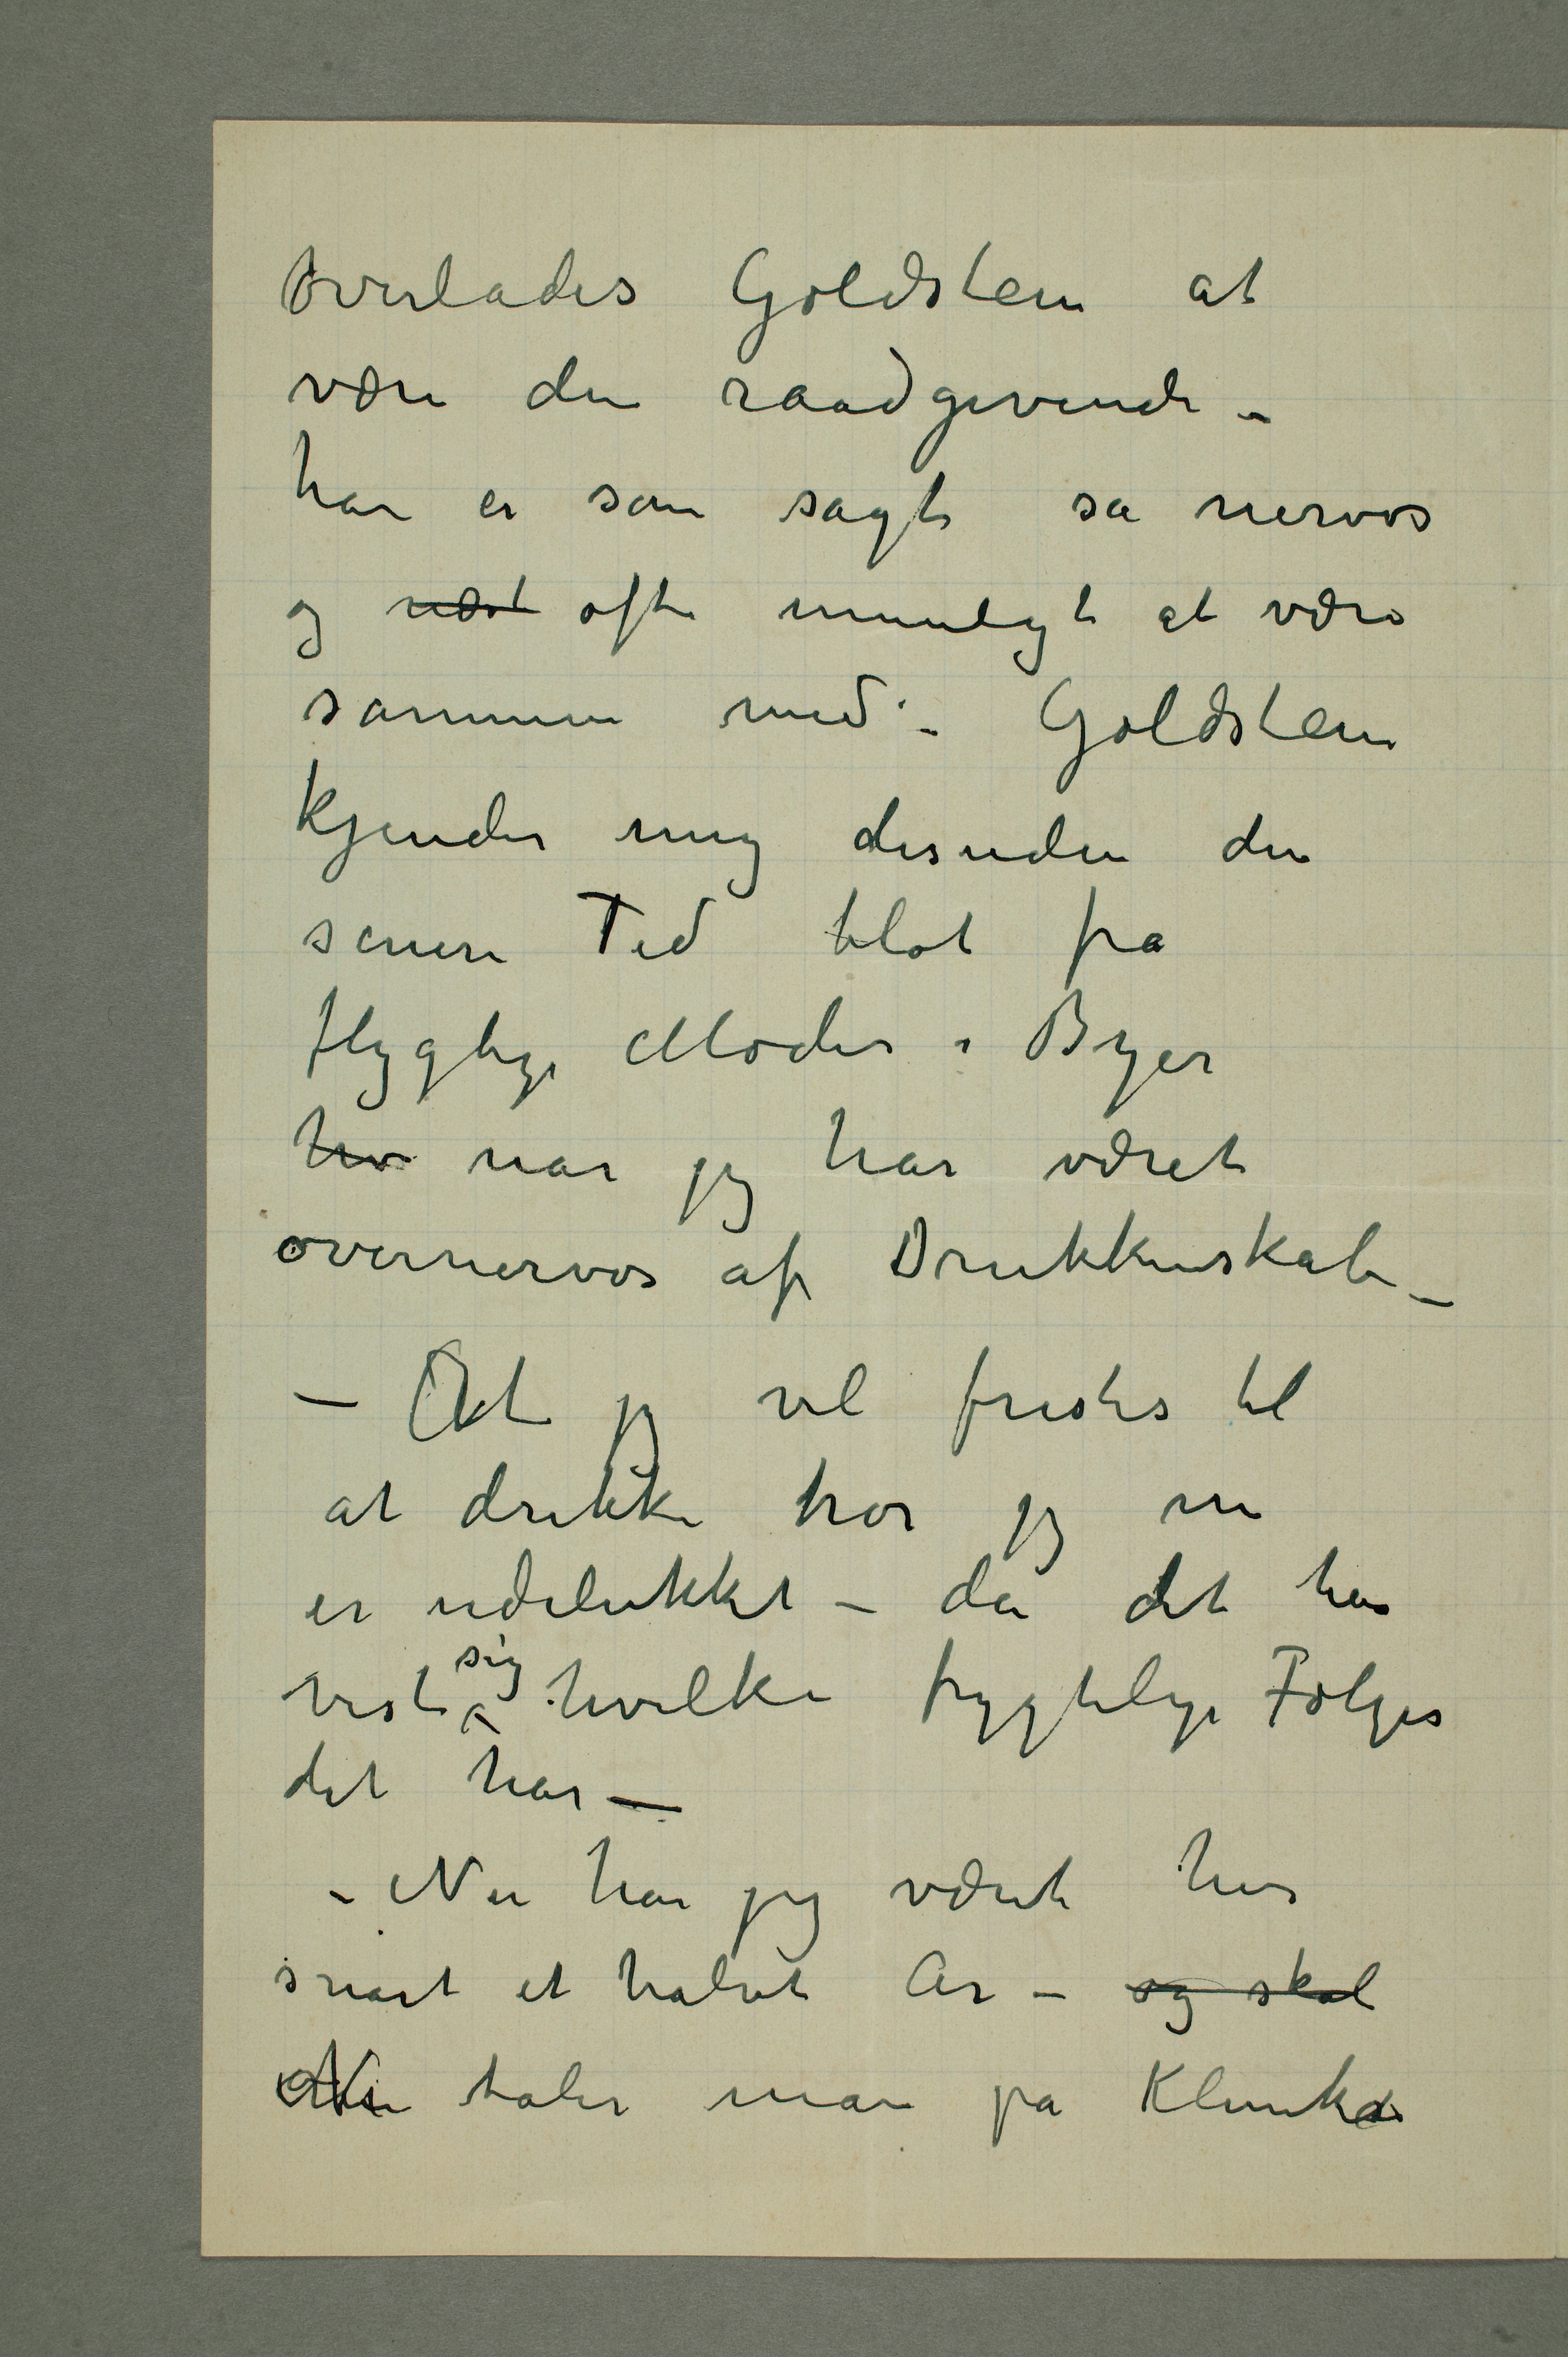 overlades Goldstein at
være den raadgivende –
han er som sagt så nervøs
og næst ofte umuligt at være
sammen med. – Goldstein
kjender mig desuden den
senere Tid blot fra
flygtige Møder i Byer
hv når jeg har været
overnervøs af Drukkenskab –
– At jeg vil fristes til
at drikke tror jeg nu
er udelukket – da det har
vist sig hvilke frygtelige Følger
det har –
– Nu har jeg været her
snart et halvt År – og skal
Nu taler man på Klinken